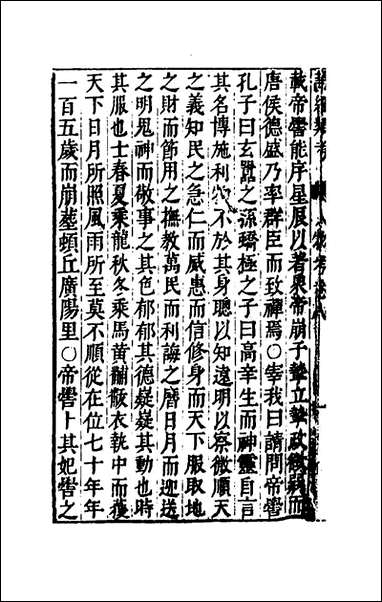 載帝嚳能序星辰以著衆帝崩子摯立摯政微弱而
唐侯德盛乃率群臣而致禪焉○宰我曰請問帝嚳
孔子曰玄囂之孫蟜極之子曰高辛生而神靈自言
其名博施利物不於其身聰以知遠明以察微順天
之義知民之急仁而威惠而信修身而天下服取地
之財而節用之撫教萬民而利誨之曆日月而迎送
之明鬼神而敬事之其色郁郁其德嶷嶷其動也時
其服也士春夏乘龍秋冬乘馬黃黼黻衣執中而獲
天下日月所照風雨所至莫不順從在位七十年年
一百五歲而崩葬頓丘廣陽里○帝嚳卜其妃嚳之